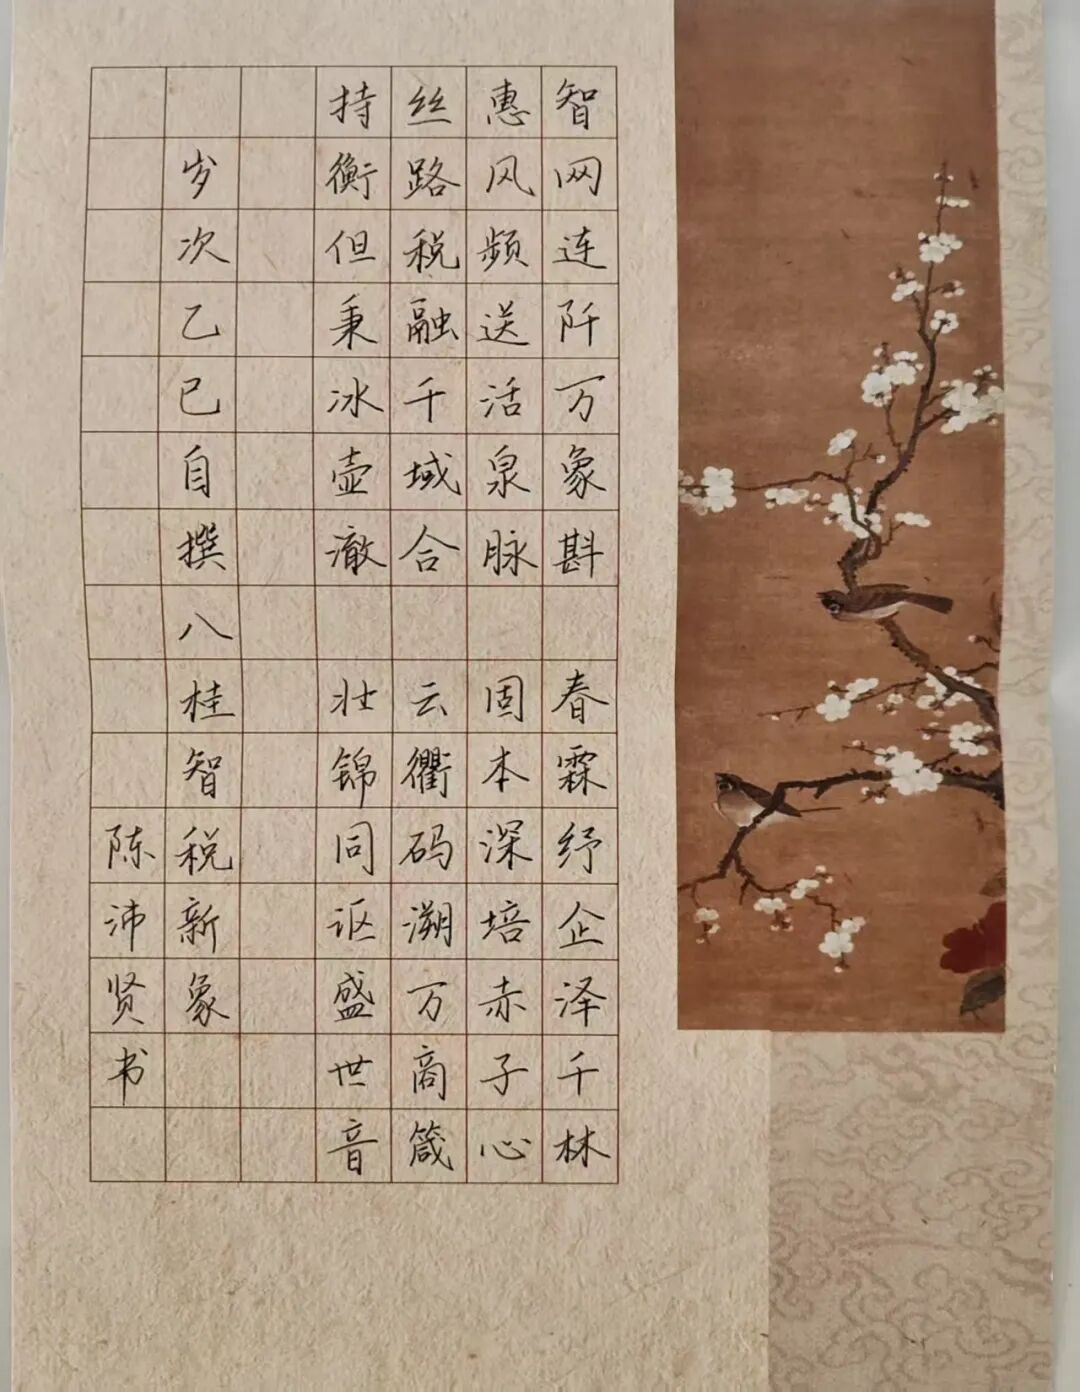 智网连阡万象斟 春霖纾企泽千林
惠风频送活泉脉 固本深培赤子心
丝路税融千域合 云衢码溯万商箴
持衡但秉冰壶澈 壮锦同讴盛世音
岁次乙巳自撰八桂智税新象
陈沛贤书